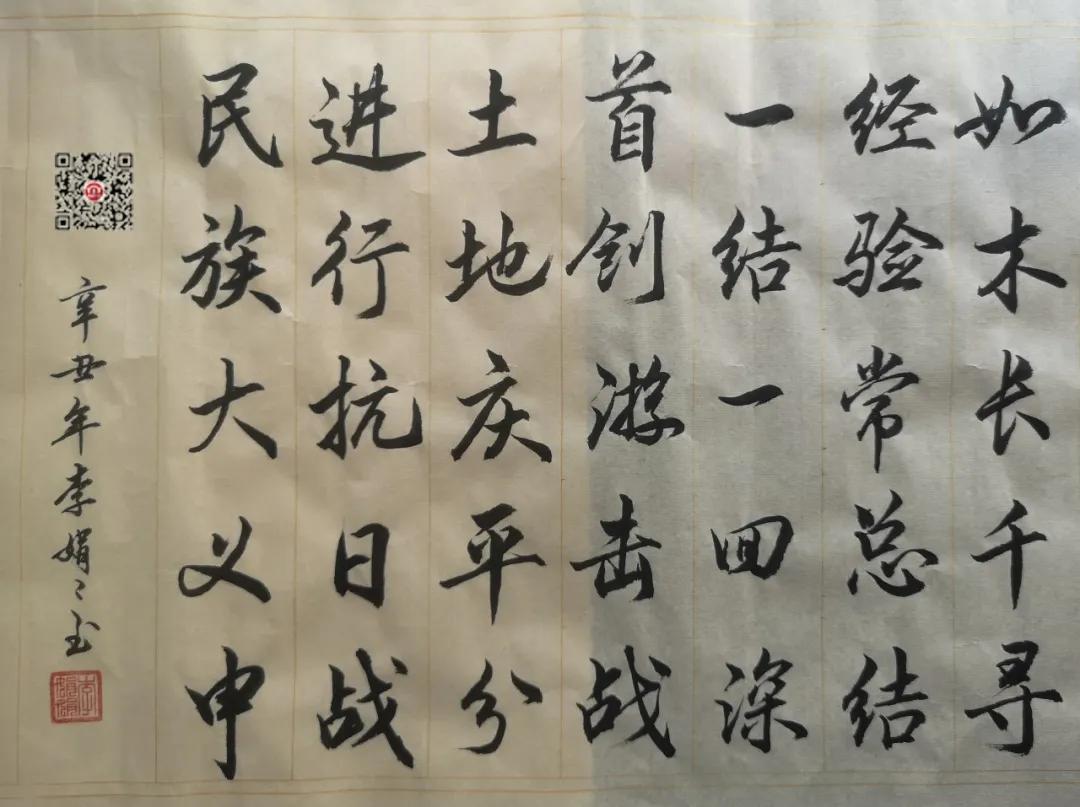 如木长千寻
经验常总结
一结一回深
首创游击战
土地庆平分
进行抗日战
民族大义申
辛丑年李娟〻书